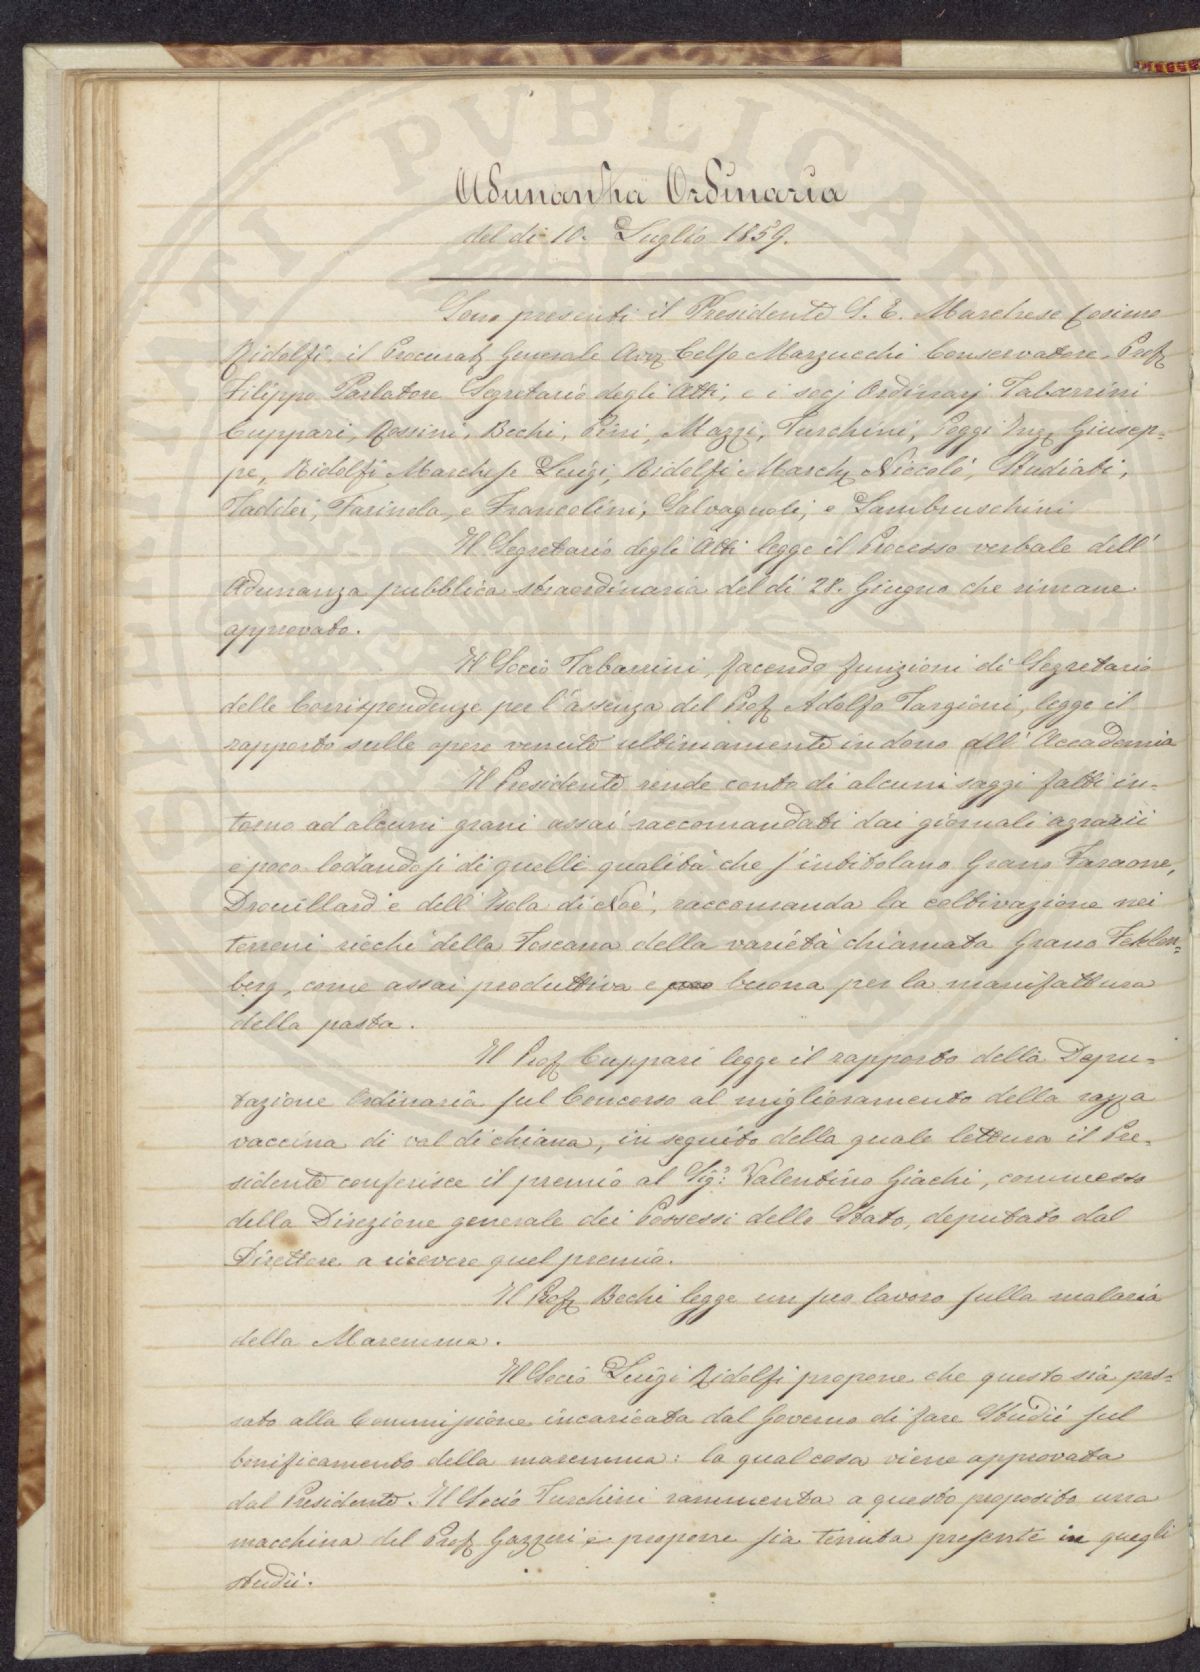 Adunanza Ordinaria
del dì 10. Luglio 1859.
Sono presenti il Presidente S. E. Marchese Cosimo
Ridolfi il Procurat. Generale Avv. Celso Marzucchi Conservatore, Prof.
Filippo Parlatore Segretario degli Atti, e i socj Ordinarj Tabarrini
Cuppari, Rossini, Bechi, Pini, Mazzi, Turchini, Poggi Ing. Giusep-
pe, Ridolfi Marchese Luigi, Ridolfi March. Niccolò, Studiati,
Taddei, Farinola, e Francolini, Salvagnoli, e Lambruschini
Il Segretario degli Atti legge il Processo verbale dell'
Adunanza pubblica straordinaria del dì 28. Giugno che rimane
approvato.
Il Socio Tabarrini, facendo funzioni di Segretario
delle Corrispondenze per l'assenza del Prof. Adolfo Targioni, legge il
rapporto sulle opere venute ultimamente in dono all'Accademia
Il Presidente rende conto di alcuni saggi fatti in-
torno ad alcuni grani assai raccomandati dai giornali agrarii
e poco lodandosi di quelli qualità che s'intitolano Grano Faraone,
Drouillard e dell'Isola di Noè, raccomanda la coltivazione nei
terreni ricchi della Toscana della varietà chiamata Grano Feklen=
berg, come assai produttiva e buona per la manifattura
della pasta.
Il Prof. Cuppari legge il rapporto della Depu-
tazione Ordinaria sul Concorso al miglioramento della razza
vaccina di val di chiana, in seguito della quale lettura il Pre-
sidente conferisce il premio al Sig.r Valentino Giachi, commesso
della Direzione generale dei Possessi dello Stato, deputato dal
Direttore a ricevere quel premio.
Il Prof. Bechi legge un suo lavoro sulla malaria
della Maremma.
Il Socio Luigi Ridolfi propone che questo sia pas=
sato alla Commissione incaricata dal Governo di fare Studii sul
bonificamento della maremma: la qual cosa viene approvata
dal Presidente. Il Socio Turchini rammenta a questo proposito una
macchina del Prof. Gazzeri e propone sia tenuta presente in quegli
studii.